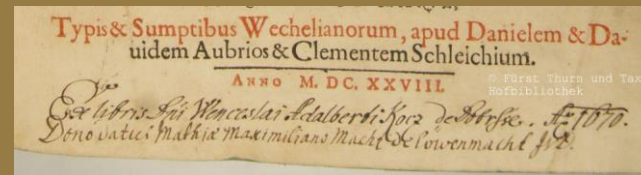 Typis & Sumptibus Wechelianorum, apud Danielem & Da-
uidem Aubrios & Clementem Schleichium.
ANNO M. DC. XXVIII.
© Fürst Thurn und Tax
Hofbibliothek
Ex libris Wenceslai Adalberti Kocz de . Aō 1670.
Dono datus Mathiæ Maximiliano Macht de Löwenmacht